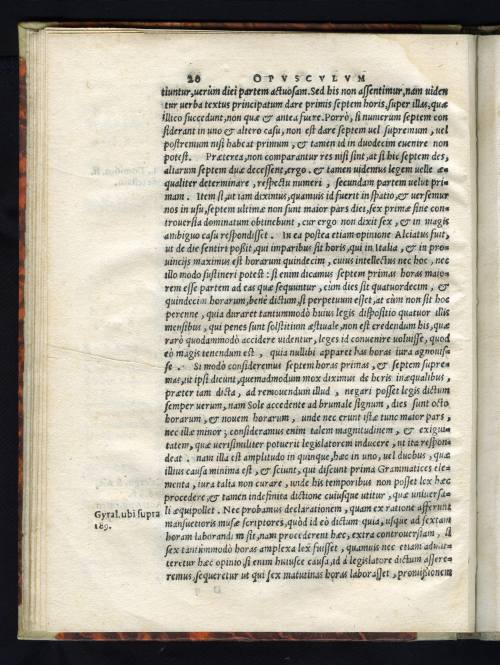 20 OPVSCVLVM
tiuntur, uerùm diei partem actuosam. Sed his non assentimur, nam uiden
tur uerba textus principatum dare primis septem horis, super illas, quæ
illico succedunt, non quæ & antea fuere. Porrò, si numerum septem con
siderant in uno & altero casu, non est dare septem uel supremum, uel
postremum nisi habeat primum, & tamen id in duodecim euenire non
potest. Præterea, non comparantur res nisi sint, at si hic septem des,
aliarum septem duæ decessent, ergo. & tamen uidemus legem uelle æ=
qualiter determinare, respectu numeri, secundam partem uelut pri
mam. Item si, ut iam diximus, quamuis id fuerit in spatio, & uersemur
nos in usu, septem ultimæ non sunt maior pars diei, sex primæ sine con=
trouersia dominatum obtinebunt, cur ergo non dixit sex, & in magis
ambiguo casu respondisset. In ea postea etiam opinione Alciatus fuit,
ut de die sentiri possit, qui imparibus sit horis, qui in Italia, & in pro=
uincijs maximus est horarum quindecim, cuius intellectus nec hoc, nec
illo modo sustineri potest: si enim dicamus septem primas horas maio=
rem esse partem ad eas quæ sequuntur, cùm dies sit quatuordecim, &
quindecim horarum, bene dictum, si perpetuum esset, at cùm non sit hoc
perenne, quia duraret tantummodo huius legis dispositio quatuor illis
mensibus, qui penes sunt solstitium æstuale, non est credendum his, quæ
rarò quodammodò accidere uidentur, leges id conuenire uoluisse, quod
eò magis tenendum est, quia nullibi apparet has horas iura agnouis=
se. Si modò consideremus septem horas primas, & septem supre=
mas, ut ipsi dicunt, quemadmodum mox diximus de horis inæqualibus,
præter iam dicta, ad remouendum illud, negari posset legis dictum
semper uerum, nam Sole accedente ad brumale signum, dies sunt octo
horarum, & nouem horarum, unde nec erunt istæ tunc maior pars,
nec illæ minor, consideramus enim talem magnitudinem, & exigui=
tatem, quæ uerisimiliter potuerit legislatorem inducere, ut ita respon=
deat. nam illa est amplitudo in quinque, hæc in uno, uel duobus, quæ
illius causa minima est, & sciunt, qui discunt prima Grammatices ele=
menta, iura talia non curare, unde his temporibus non posset lex hæc
procedere, & tamen indefinita dictione cuiusque utitur, quæ uniuersa=
li æquipollet. Nec probamus declarationem, quam ex ratione afferunt
Gyral. ubi supra
189.
mansuetioris musæ scriptores, quòd id eò dictum quia, usque ad sextam
horam laborandum sit, nam procederent hæc, extra controuersiam, si
sex tantùmmodò horas amplexa lex fuisset, quamuis nec etiam admit=
teretur hæc opinio si enim huiusce causa, id à legislatore dictum assere=
remus, sequeretur ut qui sex matutinas horas laborasset, promissionem